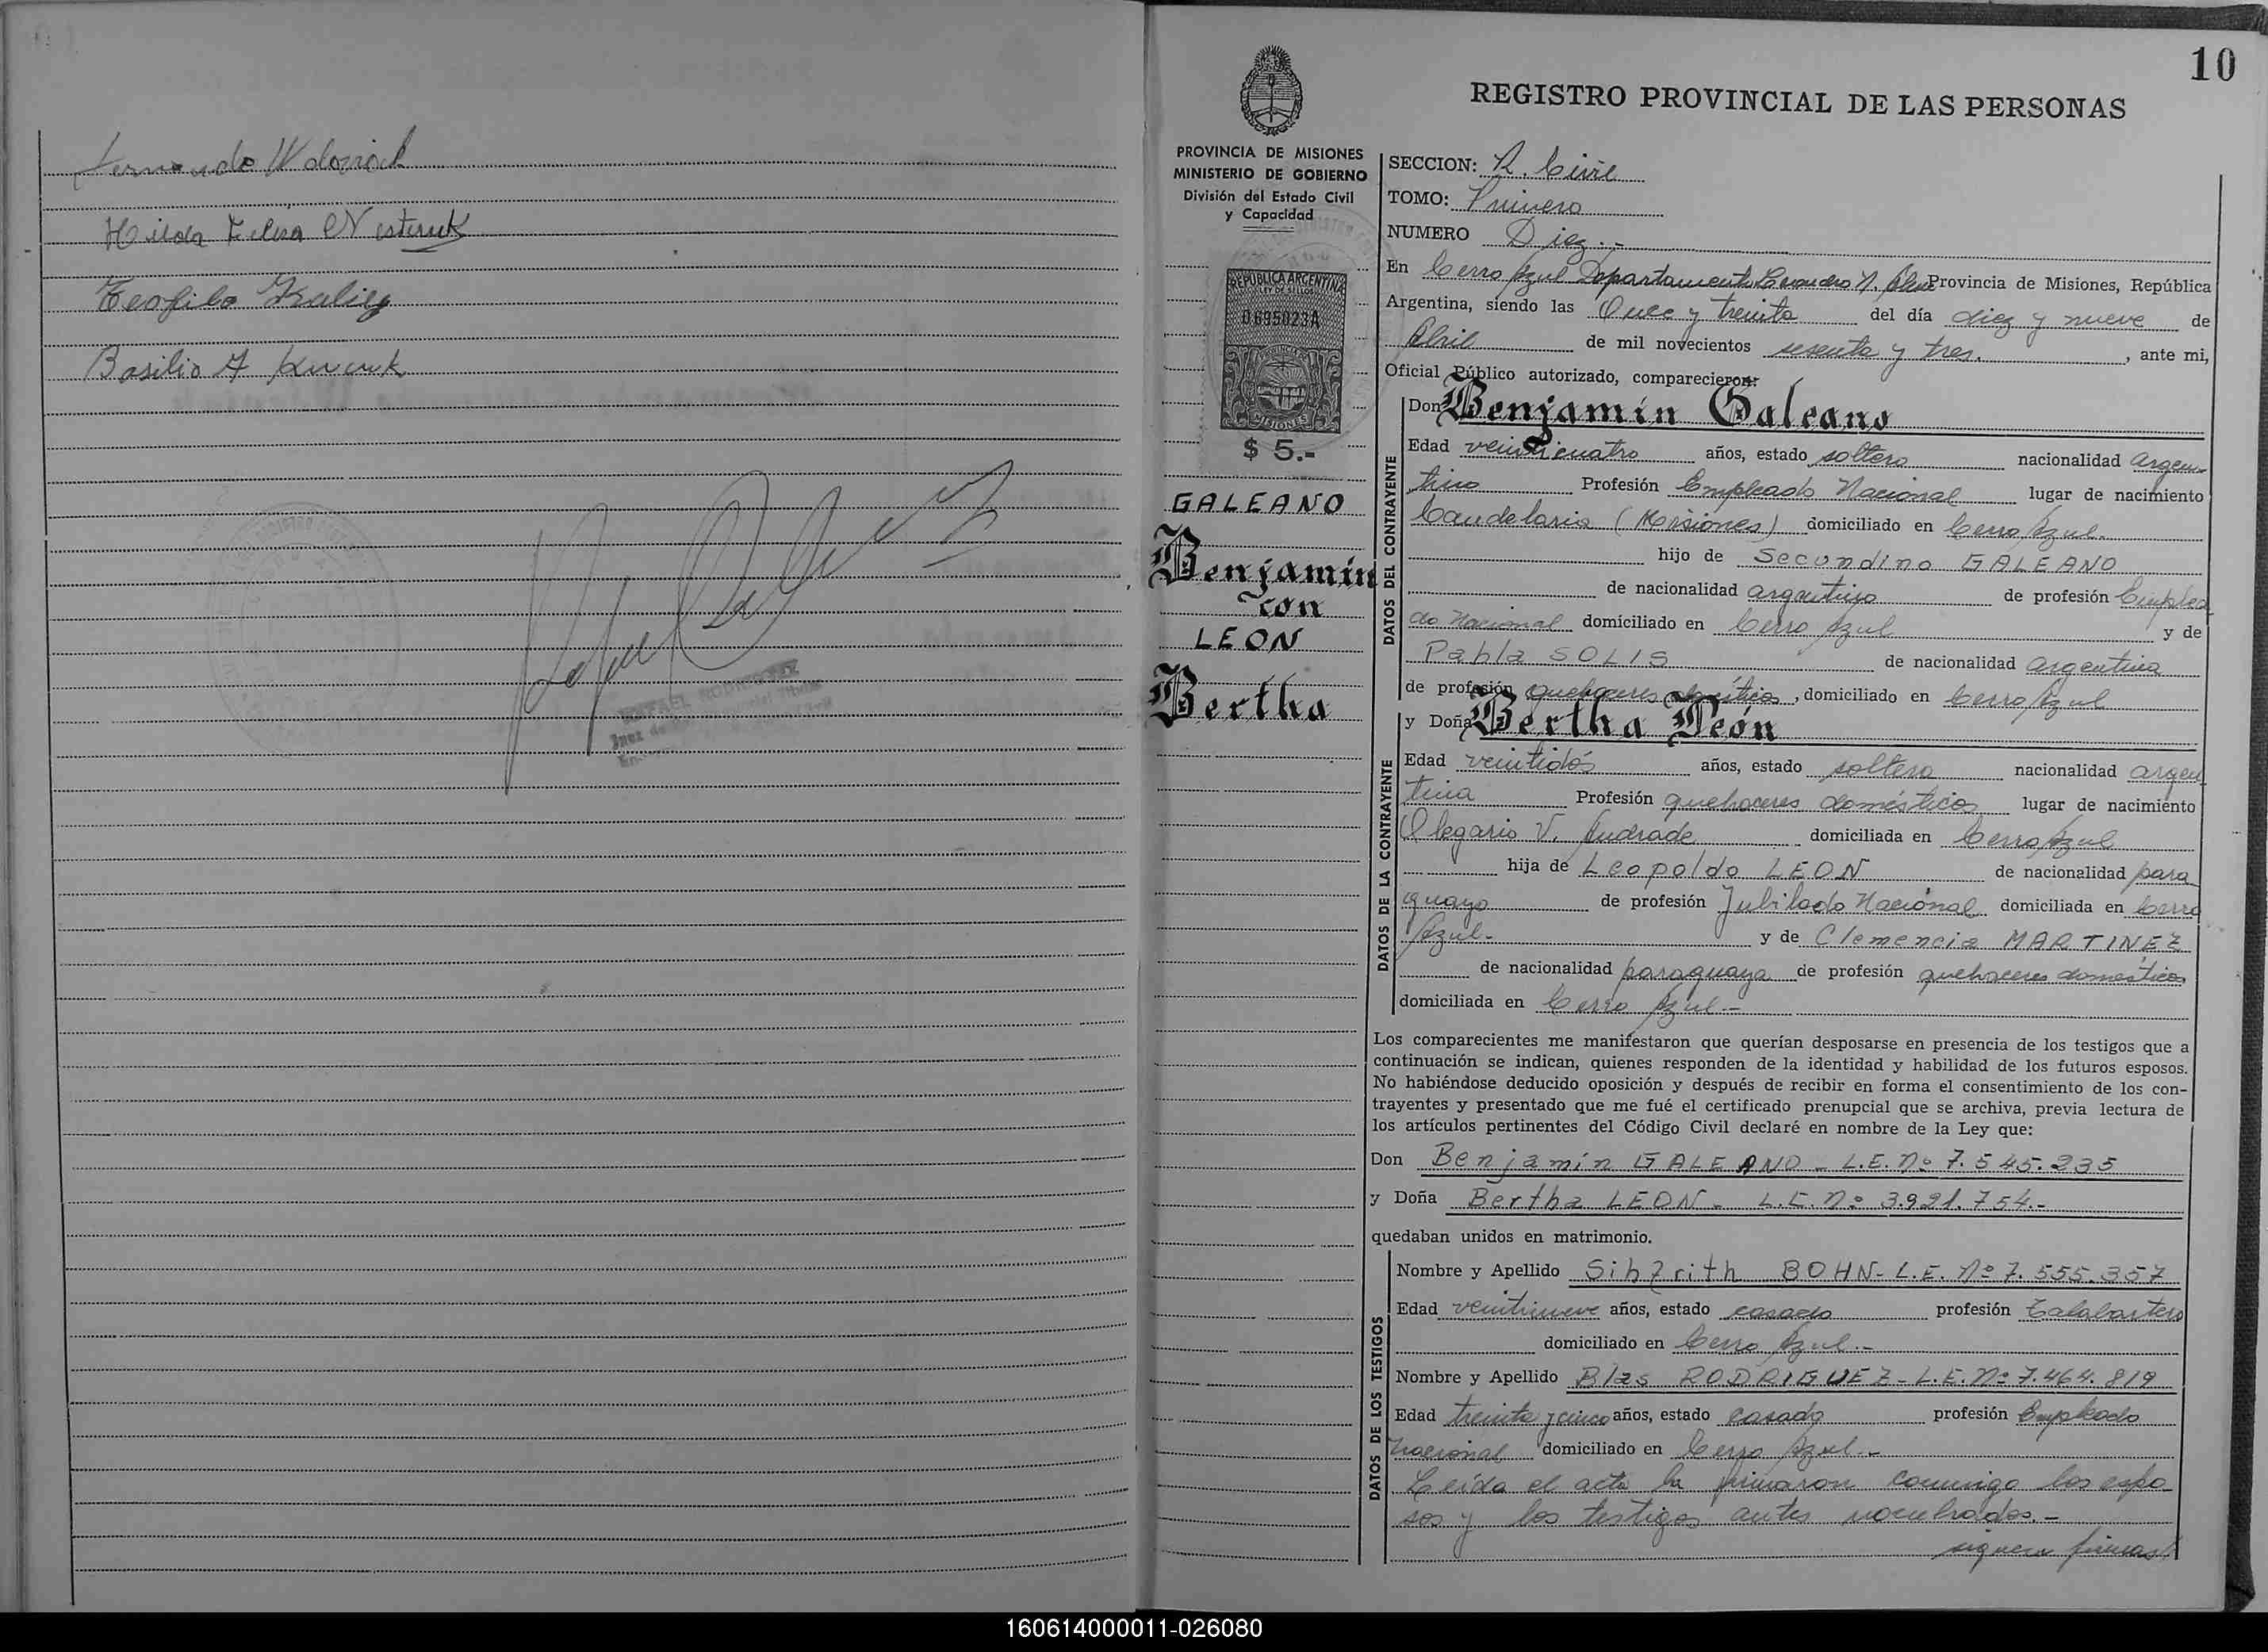 Fernando Wdoziak
Hilda Felisa Nesteruk
Teofilo
Basilio A
RAFAEL RODRIGUEZ
Juez de
10
REGISTRO PROVINCIAL DE LAS PERSONAS
PROVINCIA DE MISIONES
MINISTERIO DE GOBIERNO
División del Estado Civil
y Capacidad
REPUBLICA ARGENTINA
LEY DE SELLOS
0695023A
MISIONES
$ 5.-
GALEANO
Benjamín
con
LEON
Bertha
SECCION: R. Civil
TOMO: Primero
NUMERO Diez.-
En Cerro Azul Departamento Leandro N. Alem Provincia de Misiones, República
Argentina, siendo las Once y treinta del día diez y nueve de
Abril de mil novecientos sesenta y tres. , ante mi,
Oficial Público autorizado, comparecieron:
DATOS DEL CONTRAYENTE
Don Benjamín Galeano
Edad veinticuatro años, estado soltero nacionalidad argen-
tino Profesión Empleado Nacional lugar de nacimiento
Candelaria (Misiones) domiciliado en Cerro Azul.
hijo de Secundino GALEANO
de nacionalidad argentino de profesión Emplea
do Nacional domiciliado en Cerro Azul y de
Pabla SOLIS de nacionalidad argentina
de profesión quehaceres domésticos, domiciliado en Cerro Azul
DATOS DE LA CONTRAYENTE
y Doña Bertha León
Edad veintidós años, estado soltera nacionalidad argen
tina Profesión quehaceres domésticos lugar de nacimiento
Olegario V. Andrade domiciliada en Cerro Azul
hija de Leopoldo LEON de nacionalidad para
guayo de profesión Jubilado Nacional domiciliada en Cerro
Azul.- y de Clemencia MARTINEZ
de nacionalidad paraguaya de profesión quehaceres domésticos
domiciliada en Cerro Azul.-
Los comparecientes me manifestaron que querían desposarse en presencia de los testigos que a
continuación se indican, quienes responden de la identidad y habilidad de los futuros esposos.
No habiéndose deducido oposición y después de recibir en forma el consentimiento de los con-
trayentes y presentado que me fué el certificado prenupcial que se archiva, previa lectura de
los artículos pertinentes del Código Civil declaré en nombre de la Ley que:
Don Benjamín GALEANO - L.E. Nº 7.545.235
y Doña Bertha LEON - L.C. Nº 3.921.754.-
quedaban unidos en matrimonio.
DATOS DE LOS TESTIGOS
Nombre y Apellido Sihfrith BOHN - L.E. Nº 7.555.357
Edad veintinueve años, estado casado profesión Talabartero
domiciliado en Cerro Azul.-
Nombre y Apellido Blas RODRIGUEZ - L.E. Nº 7.464.819
Edad treinta y cinco años, estado casado profesión Empleado
Nacional domiciliado en Cerro Azul.-
Leída el acta la firmaron conmigo los espo
sos y los testigos antes nombrados.-
siguen firmas
160614000011-026080